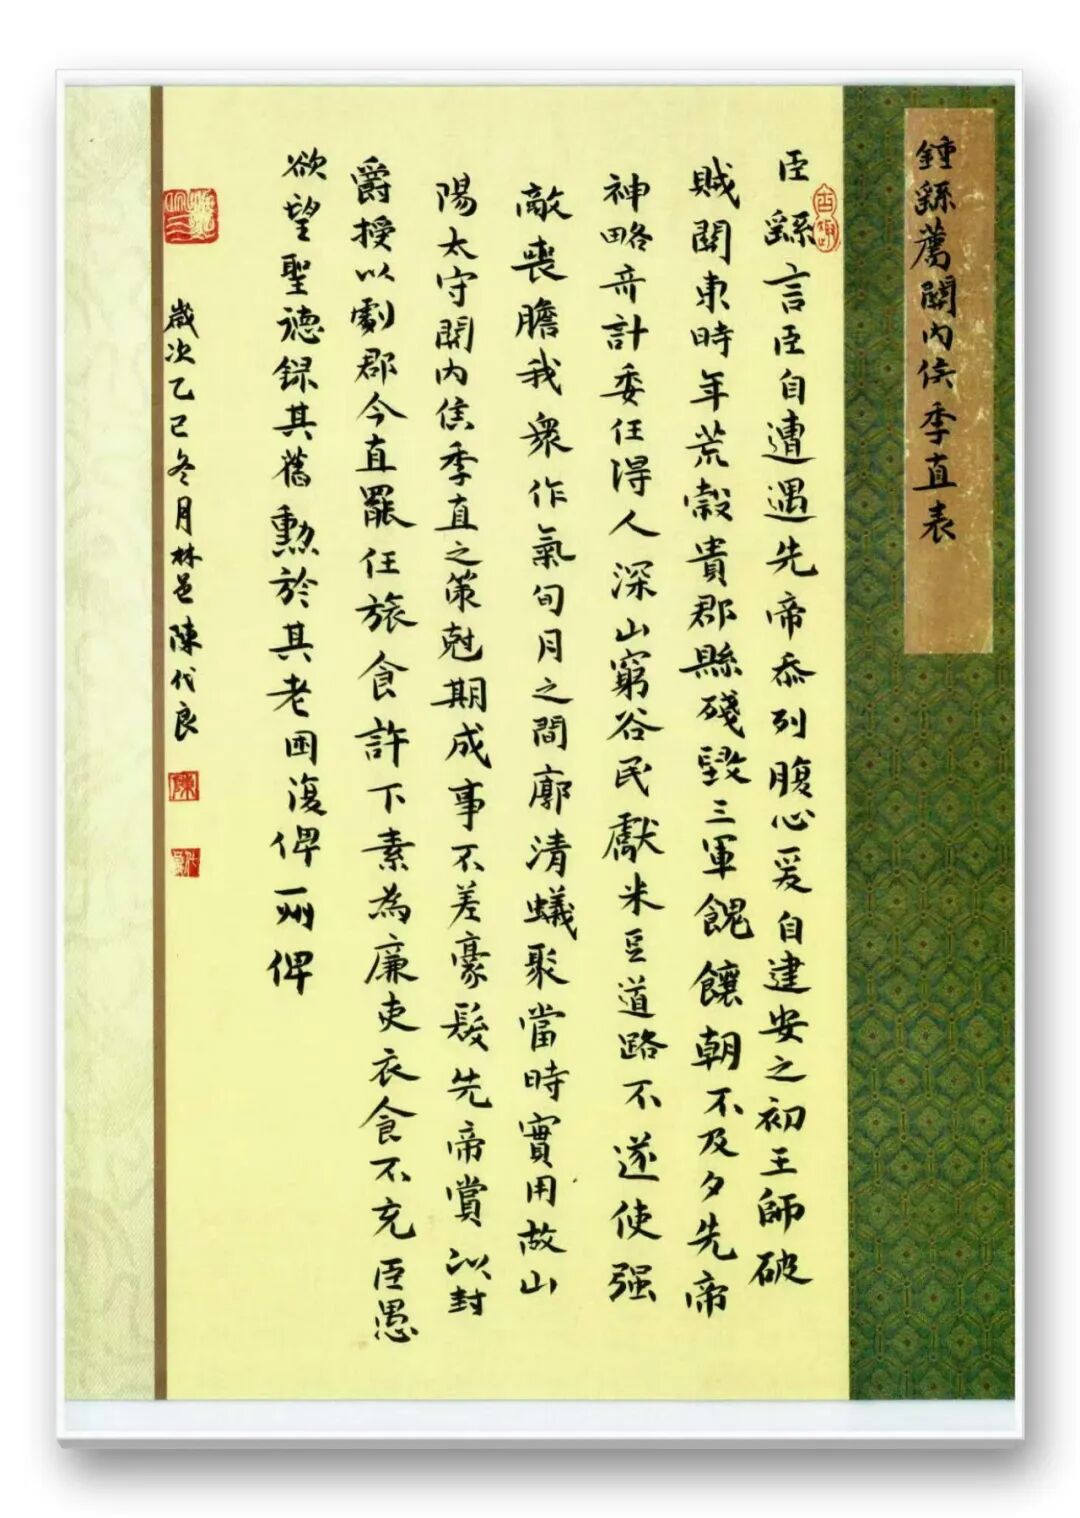 鍾繇薦關內侯季直表
臣繇言臣自遭遇先帝忝列腹心爰自建安之初王師破
賊關東時年荒榖貴郡縣殘毀三軍餽饟朝不及夕先帝
神略奇計委任得人深山窮谷民獻米豆道路不遂使强
敵喪膽我衆作氣旬月之間廓清蟻聚當時實用故山
陽太守關內侯季直之策尅期成事不差豪髮先帝賞以封
爵授以劇郡今直罷任旅食許下素為廉吏衣食不充臣愚
欲望聖德録其舊勳於其老困復俾一州俾
歲次乙巳冬月林邑陳代良
陳